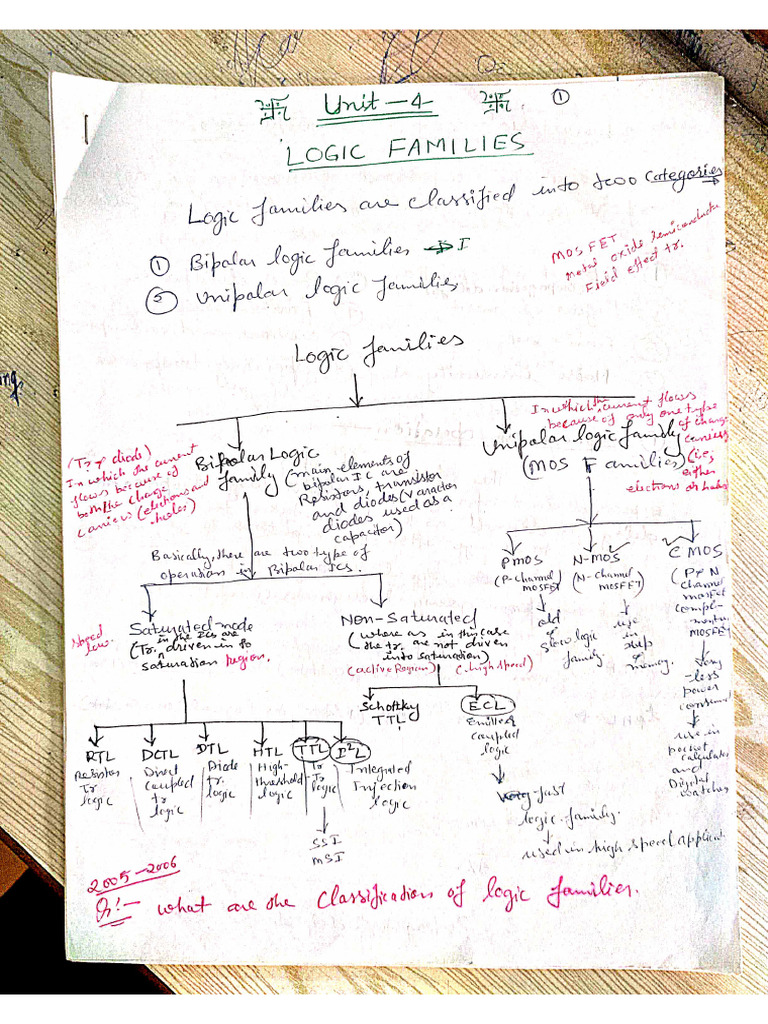 Unit-4
①
LOGIC FAMILIES
Logic families are classified into two categories
① Bipolar logic families → I
② Unipolar logic families
MOSFET
Metal oxide semiconductor
Field effect tr.
Logic families
(Tr & diode)
In which the current
flows because of
both the charge
carriers (electrons and
holes)
Bipolar Logic
family (main elements of
bipolar IC are
Resistors, transistor
and diodes (varactor
diodes used as a
capacitor)
In which the current flows
because of only one type
of charge
carriers
(i.e,
either
electrons or holes
Unipolar logic family
(MOS Families)
Basically, there are two type of
operation in Bipolar ICs.
Speed
low.
Saturated mode
(Tr. in the ICs are
driven in to
saturation Region.
Non-Saturated
(where as in this case
the tr. are not driven
into saturation)
(active Region) (high speed)
PMOS
(P-channel
MOSFET)
old
&
slow logic
family.
N-MOS
(N-channel
MOSFET)
use
in
memory.
CMOS
(P & N
channel
MOSFET
MOSFET)
very
less
power
use in
pocket
calculator
and
Digital
watches
RTL
Resistor
Tr
logic
DCTL
Direct
coupled
tr
logic
DTL
Diode
tr.
logic
HTL
High-
threshold
logic
TTL
Tr
Tr
logic
SSI
MSI
I²L
Integrated
Injection
logic
Schottky
TTL
ECL
Emitter
coupled
logic
Very fast
logic family.
used in high speed applicat
2005-2006
Q!- what are the Classification of logic families.